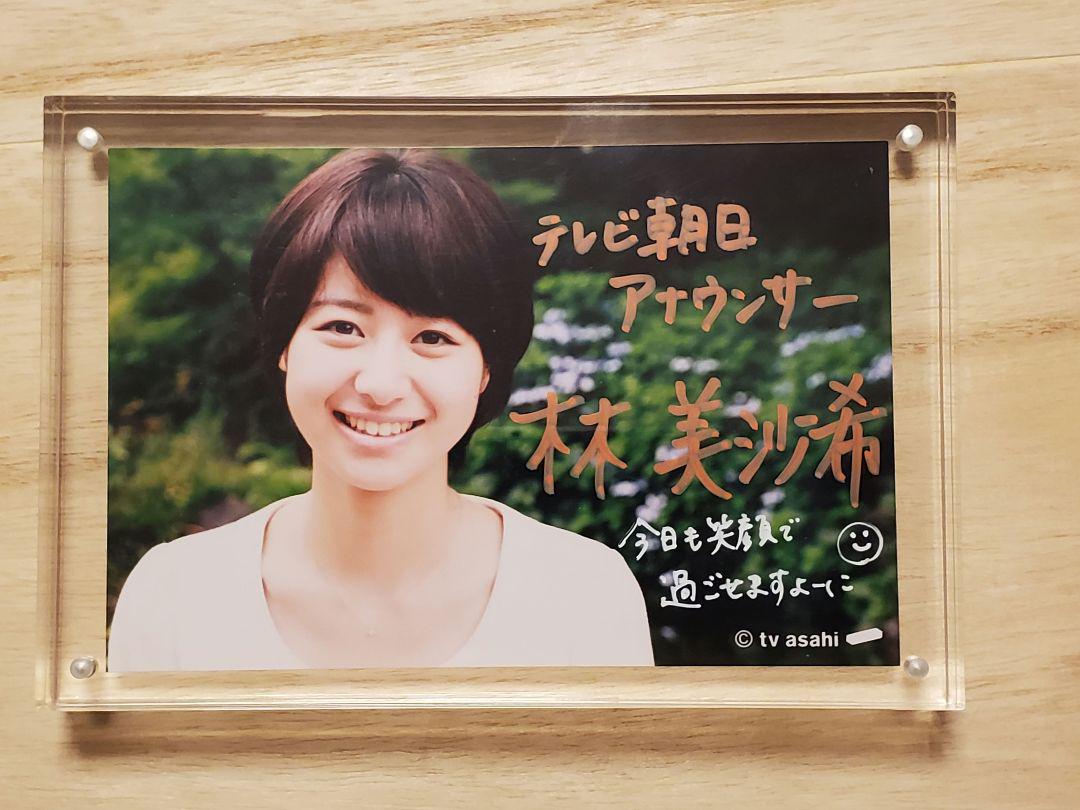 テレビ朝日
アナウンサー
林 美沙希
今日も笑顔で
過ごせますよーに
© tv asahi